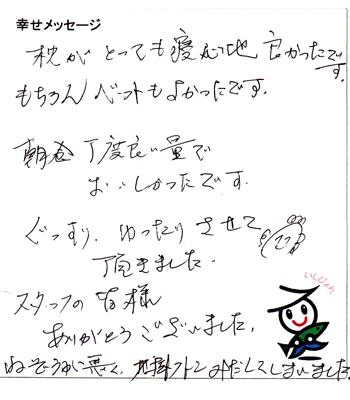 幸せメッセージ
枕がとっても寝心地良かったです。
もちろんベットもよかったです。
朝食 丁度良い量で
おいしかったです。
ぐっすり、ゆったりさせて
頂きました。
スタッフの皆様
ありがとうございました。
ねぞうが悪く、掛フトンみだしてしまいました